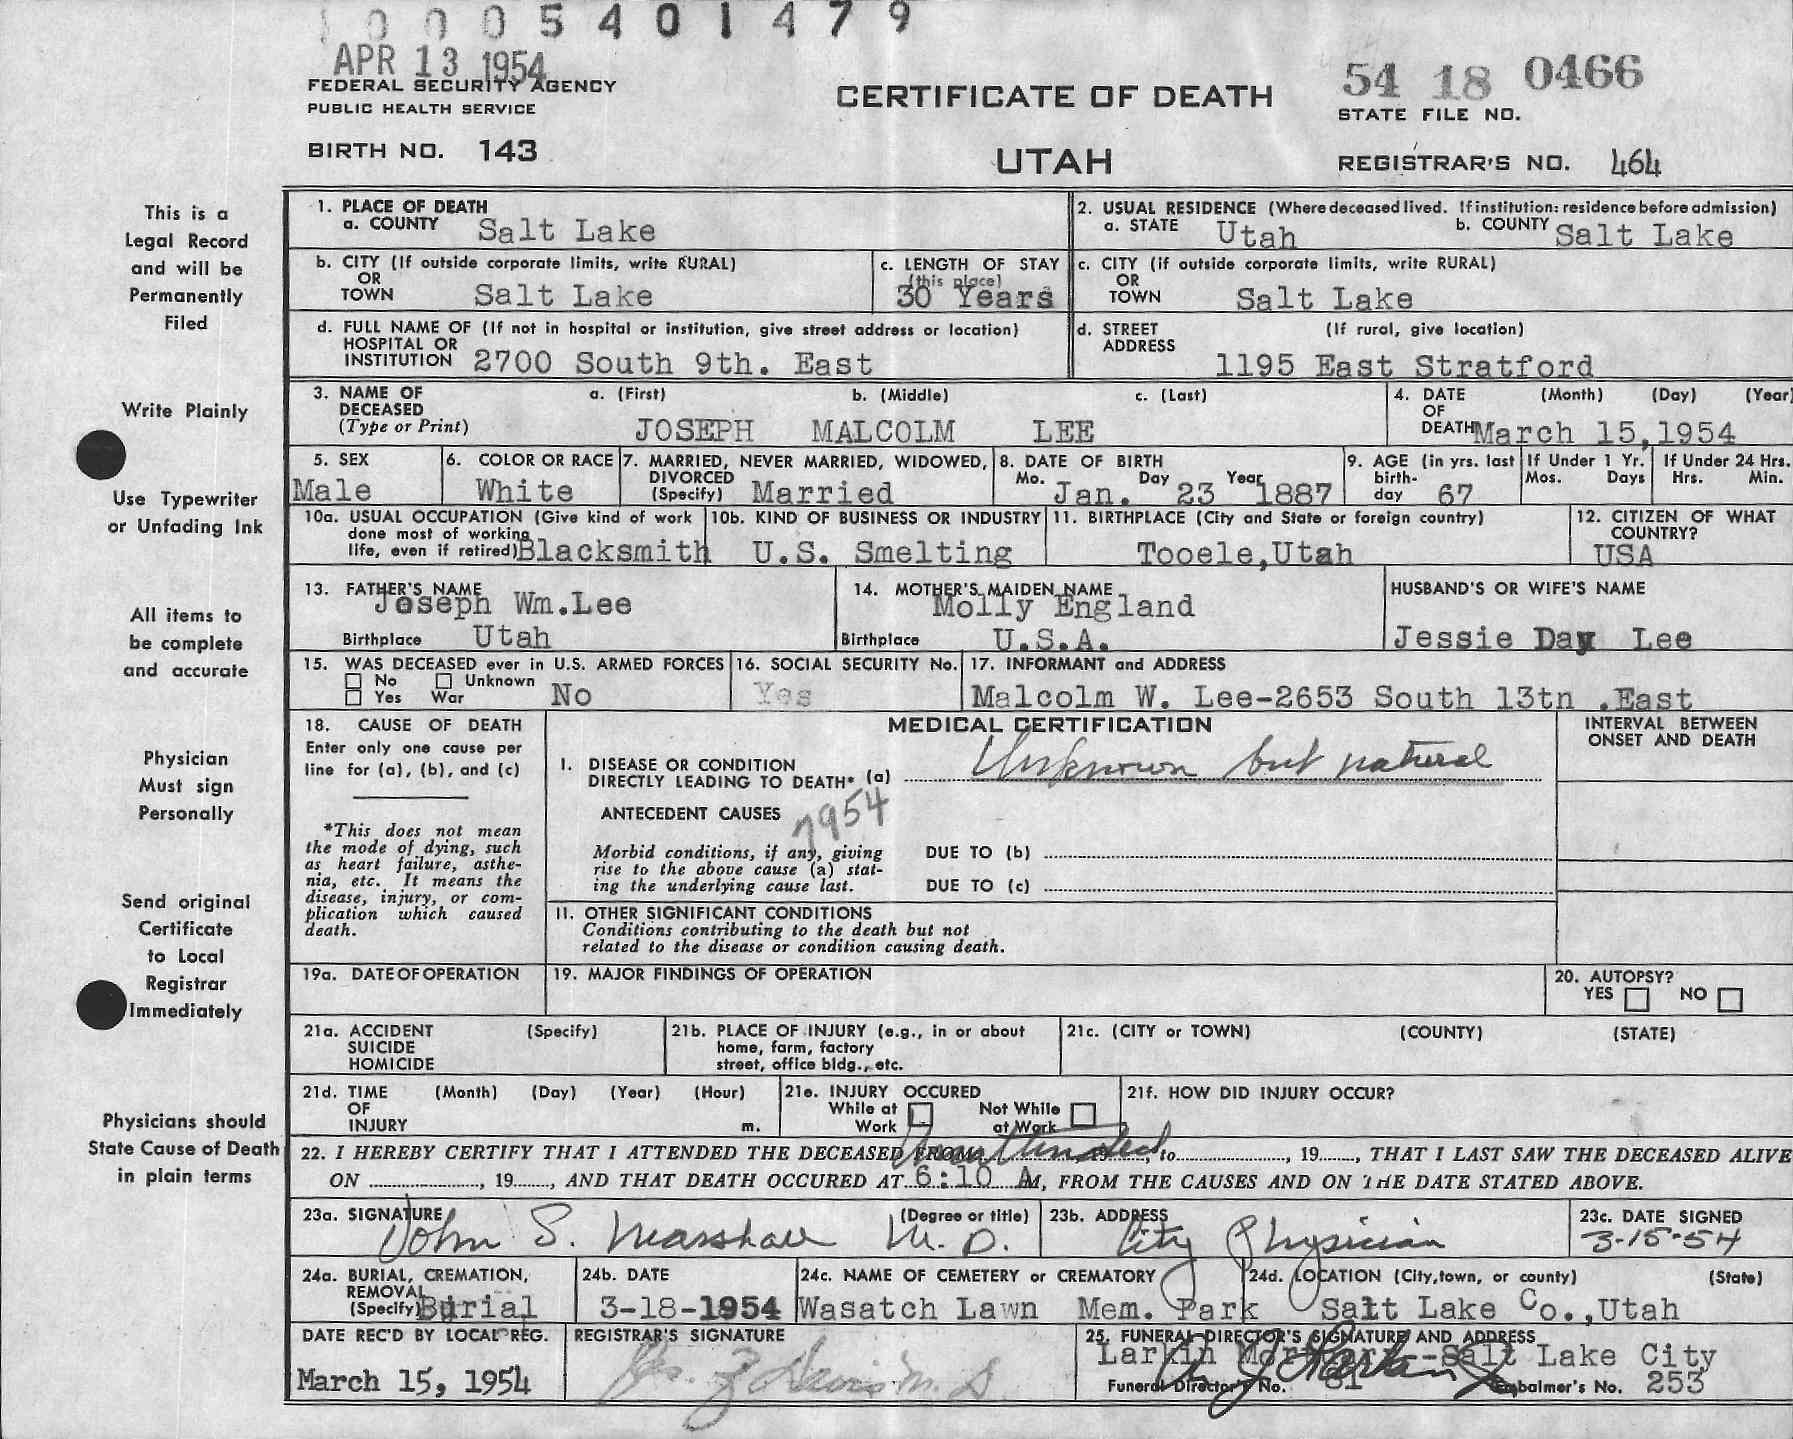 0005401479
APR 13 1954
FEDERAL SECURITY AGENCY
PUBLIC HEALTH SERVICE
BIRTH NO. 143
CERTIFICATE OF DEATH
UTAH
54 18 0466
STATE FILE NO.
REGISTRAR'S NO. 464
This is a
Legal Record
and will be
Permanently
Filed
Write Plainly
Use Typewriter
or Unfading Ink
All items to
be complete
and accurate
Physician
Must sign
Personally
Send original
Certificate
to Local
Registrar
Immediately
Physicians should
State Cause of Death
in plain terms
1. PLACE OF DEATH
a. COUNTY Salt Lake
2. USUAL RESIDENCE (Where deceased lived. If institution: residence before admission)
a. STATE Utah b. COUNTY Salt Lake
b. CITY (If outside corporate limits, write RURAL)
OR
TOWN Salt Lake
c. LENGTH OF STAY
(this place)
30 Years
c. CITY (if outside corporate limits, write RURAL)
OR
TOWN Salt Lake
d. FULL NAME OF (If not in hospital or institution, give street address or location)
HOSPITAL OR
INSTITUTION 2700 South 9th. East
d. STREET (If rural, give location)
ADDRESS
1195 East Stratford
3. NAME OF a. (First) b. (Middle) c. (Last)
DECEASED
(Type or Print) JOSEPH MALCOLM LEE
4. DATE (Month) (Day) (Year)
OF
DEATH March 15, 1954
5. SEX
Male
6. COLOR OR RACE
White
7. MARRIED, NEVER MARRIED, WIDOWED,
DIVORCED
(Specify) Married
8. DATE OF BIRTH
Mo. Day Year
Jan. 23 1887
9. AGE (in yrs. last
birth-
day 67
If Under 1 Yr.
Mos. Days
If Under 24 Hrs.
Hrs. Min.
10a. USUAL OCCUPATION (Give kind of work
done most of working
life, even if retired) Blacksmith
10b. KIND OF BUSINESS OR INDUSTRY
U.S. Smelting
11. BIRTHPLACE (City and State or foreign country)
Tooele, Utah
12. CITIZEN OF WHAT
COUNTRY?
USA
13. FATHER'S NAME
Joseph Wm. Lee
Birthplace Utah
14. MOTHER'S MAIDEN NAME
Molly England
Birthplace U.S.A.
HUSBAND'S OR WIFE'S NAME
Jessie Day Lee
15. WAS DECEASED ever in U.S. ARMED FORCES
No Unknown
Yes War No
16. SOCIAL SECURITY No.
Yes
17. INFORMANT and ADDRESS
Malcolm W. Lee-2653 South 13tn .East
18. CAUSE OF DEATH
Enter only one cause per
line for (a), (b), and (c)
*This does not mean
the mode of dying, such
as heart failure, asthe-
nia, etc. It means the
disease, injury, or com-
plication which caused
death.
MEDICAL CERTIFICATION
INTERVAL BETWEEN
ONSET AND DEATH
I. DISEASE OR CONDITION
DIRECTLY LEADING TO DEATH* (a) Unknown but natural
ANTECEDENT CAUSES
7954
Morbid conditions, if any, giving
rise to the above cause (a) stat-
ing the underlying cause last.
DUE TO (b)
DUE TO (c)
II. OTHER SIGNIFICANT CONDITIONS
Conditions contributing to the death but not
related to the disease or condition causing death.
19a. DATE OF OPERATION
19. MAJOR FINDINGS OF OPERATION
20. AUTOPSY?
YES NO
21a. ACCIDENT (Specify)
SUICIDE
HOMICIDE
21b. PLACE OF INJURY (e.g., in or about
home, farm, factory
street, office bldg., etc.
21c. (CITY or TOWN) (COUNTY) (STATE)
21d. TIME (Month) (Day) (Year) (Hour)
OF
INJURY m.
21e. INJURY OCCURED
While at Not While
Work at Work
21f. HOW DID INJURY OCCUR?
22. I HEREBY CERTIFY THAT I ATTENDED THE DECEASED FROM Unattended, to , 19 , THAT I LAST SAW THE DECEASED ALIVE
ON , 19 , AND THAT DEATH OCCURED AT 6:10 A M, FROM THE CAUSES AND ON THE DATE STATED ABOVE.
23a. SIGNATURE (Degree or title)
John S. Marshall M.D.
23b. ADDRESS
City Physician
23c. DATE SIGNED
3-15-54
24a. BURIAL, CREMATION,
REMOVAL
(Specify) Burial
24b. DATE
3-18-1954
24c. NAME OF CEMETERY or CREMATORY
Wasatch Lawn Mem. Park
24d. LOCATION (City, town, or county) (State)
Salt Lake Co., Utah
DATE REC'D BY LOCAL REG.
March 15, 1954
REGISTRAR'S SIGNATURE
25. FUNERAL DIRECTOR'S SIGNATURE AND ADDRESS
Larkin Mortuary-Salt Lake City
Funeral Director's No. 81 Embalmer's No. 253